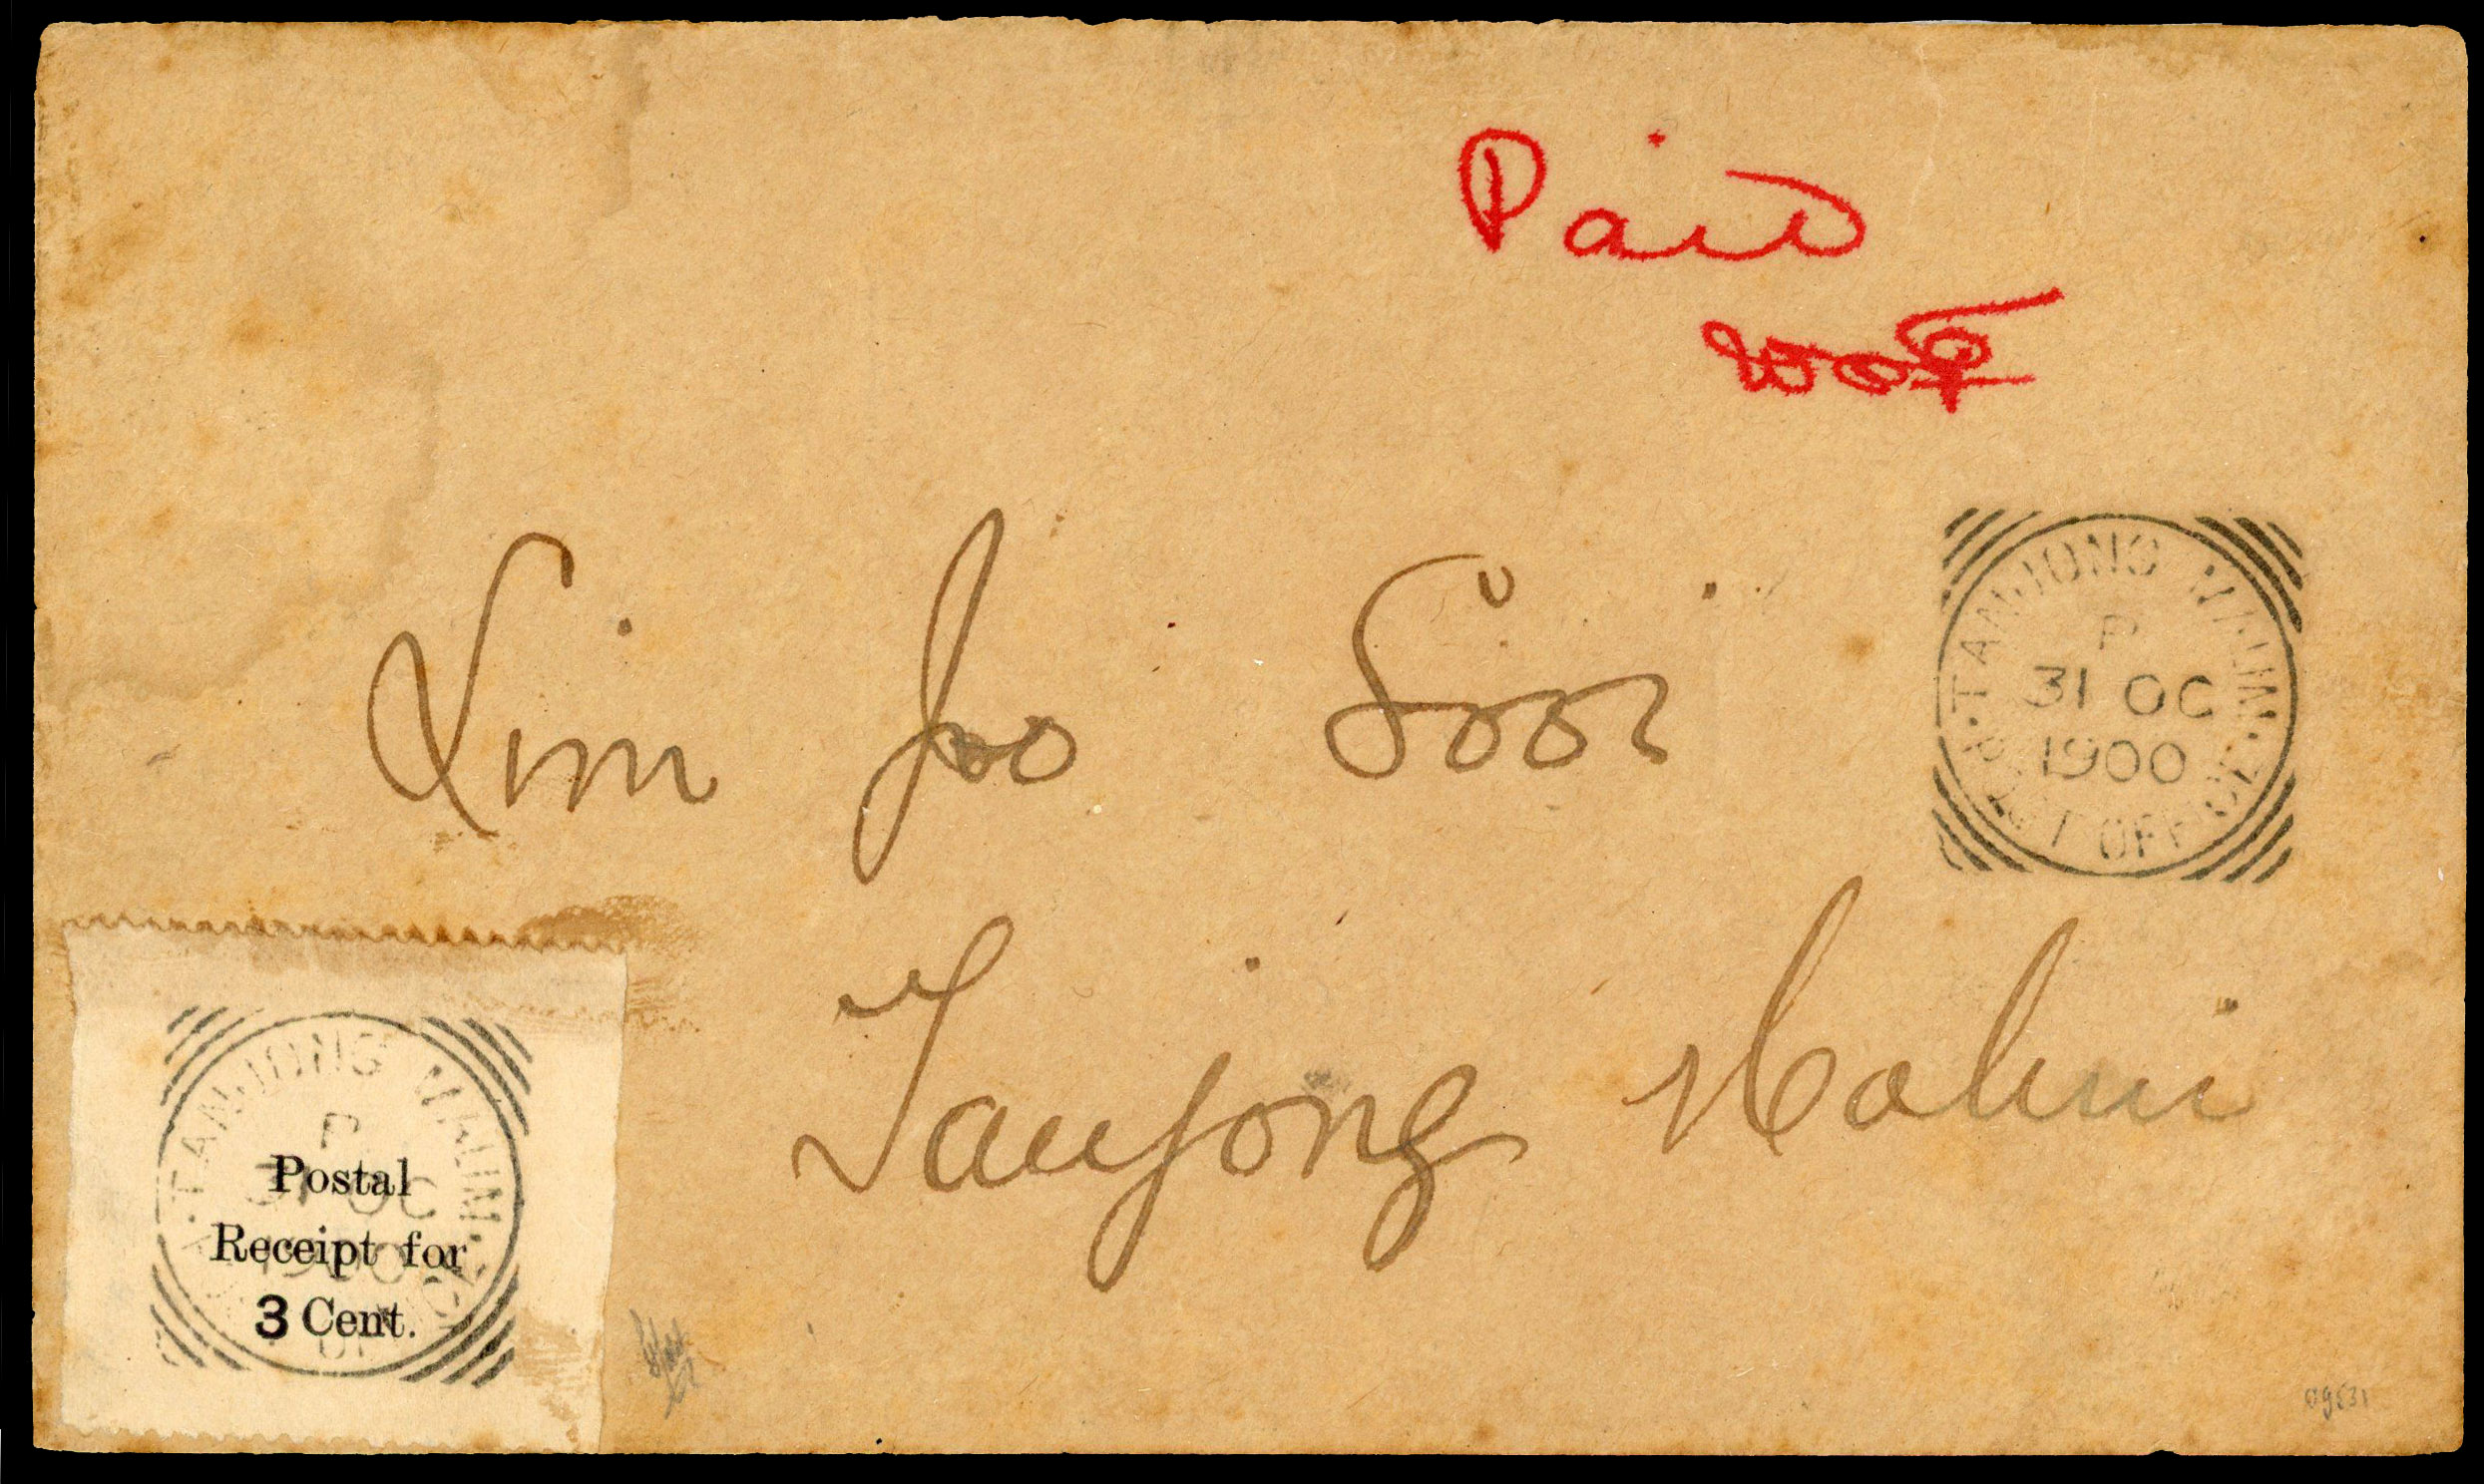 Paid
Lim Joo Sooi
TANJONG MALIM
P
31 OC
1900
POST OFFICE
Tanjong Malim
TANJONG MALIM
P
31 OC
1900
Postal
Receipt for
3 Cent.